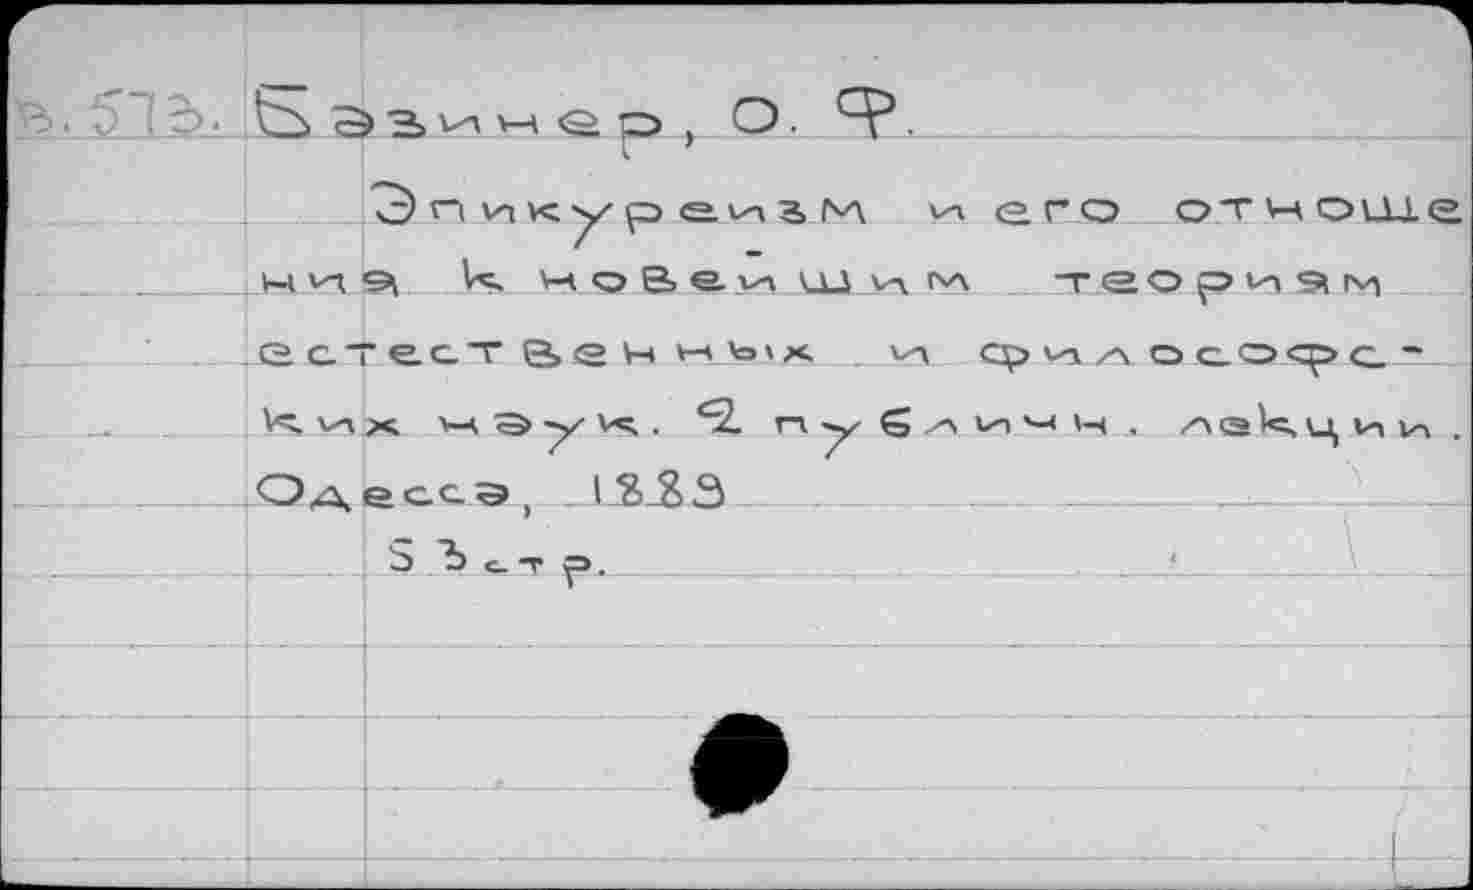 в. 573. Базинер, О. Ф.
Эпикуреизм и его отноше
ния к новейшим теориям
естественных и философс-
ких наук. 2 публичн. лекции.
Одесса, 1883
53 стр.